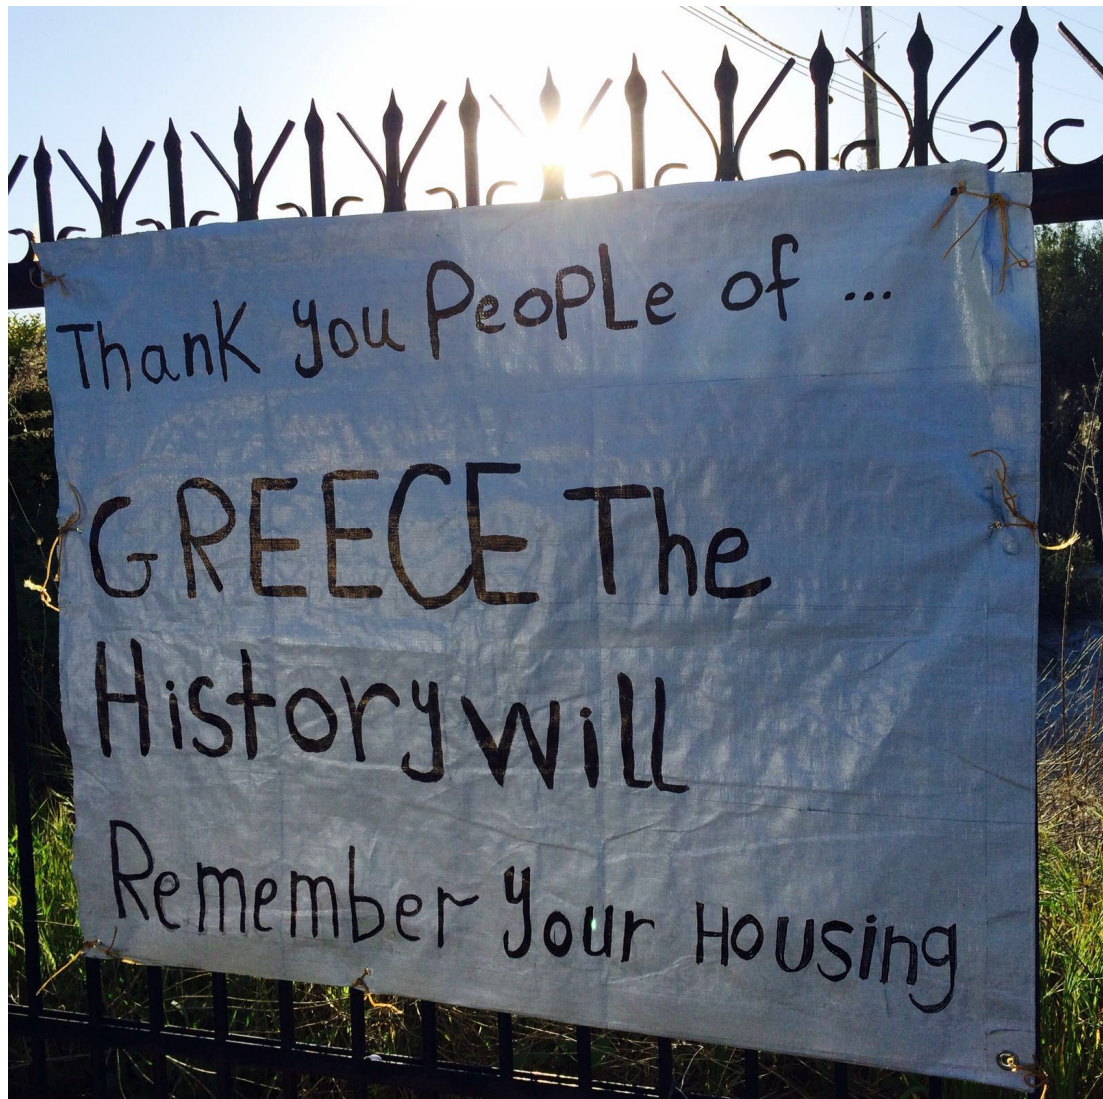 Thank you PeoPLe of ...
GREECE The
History will
Remember your Housing